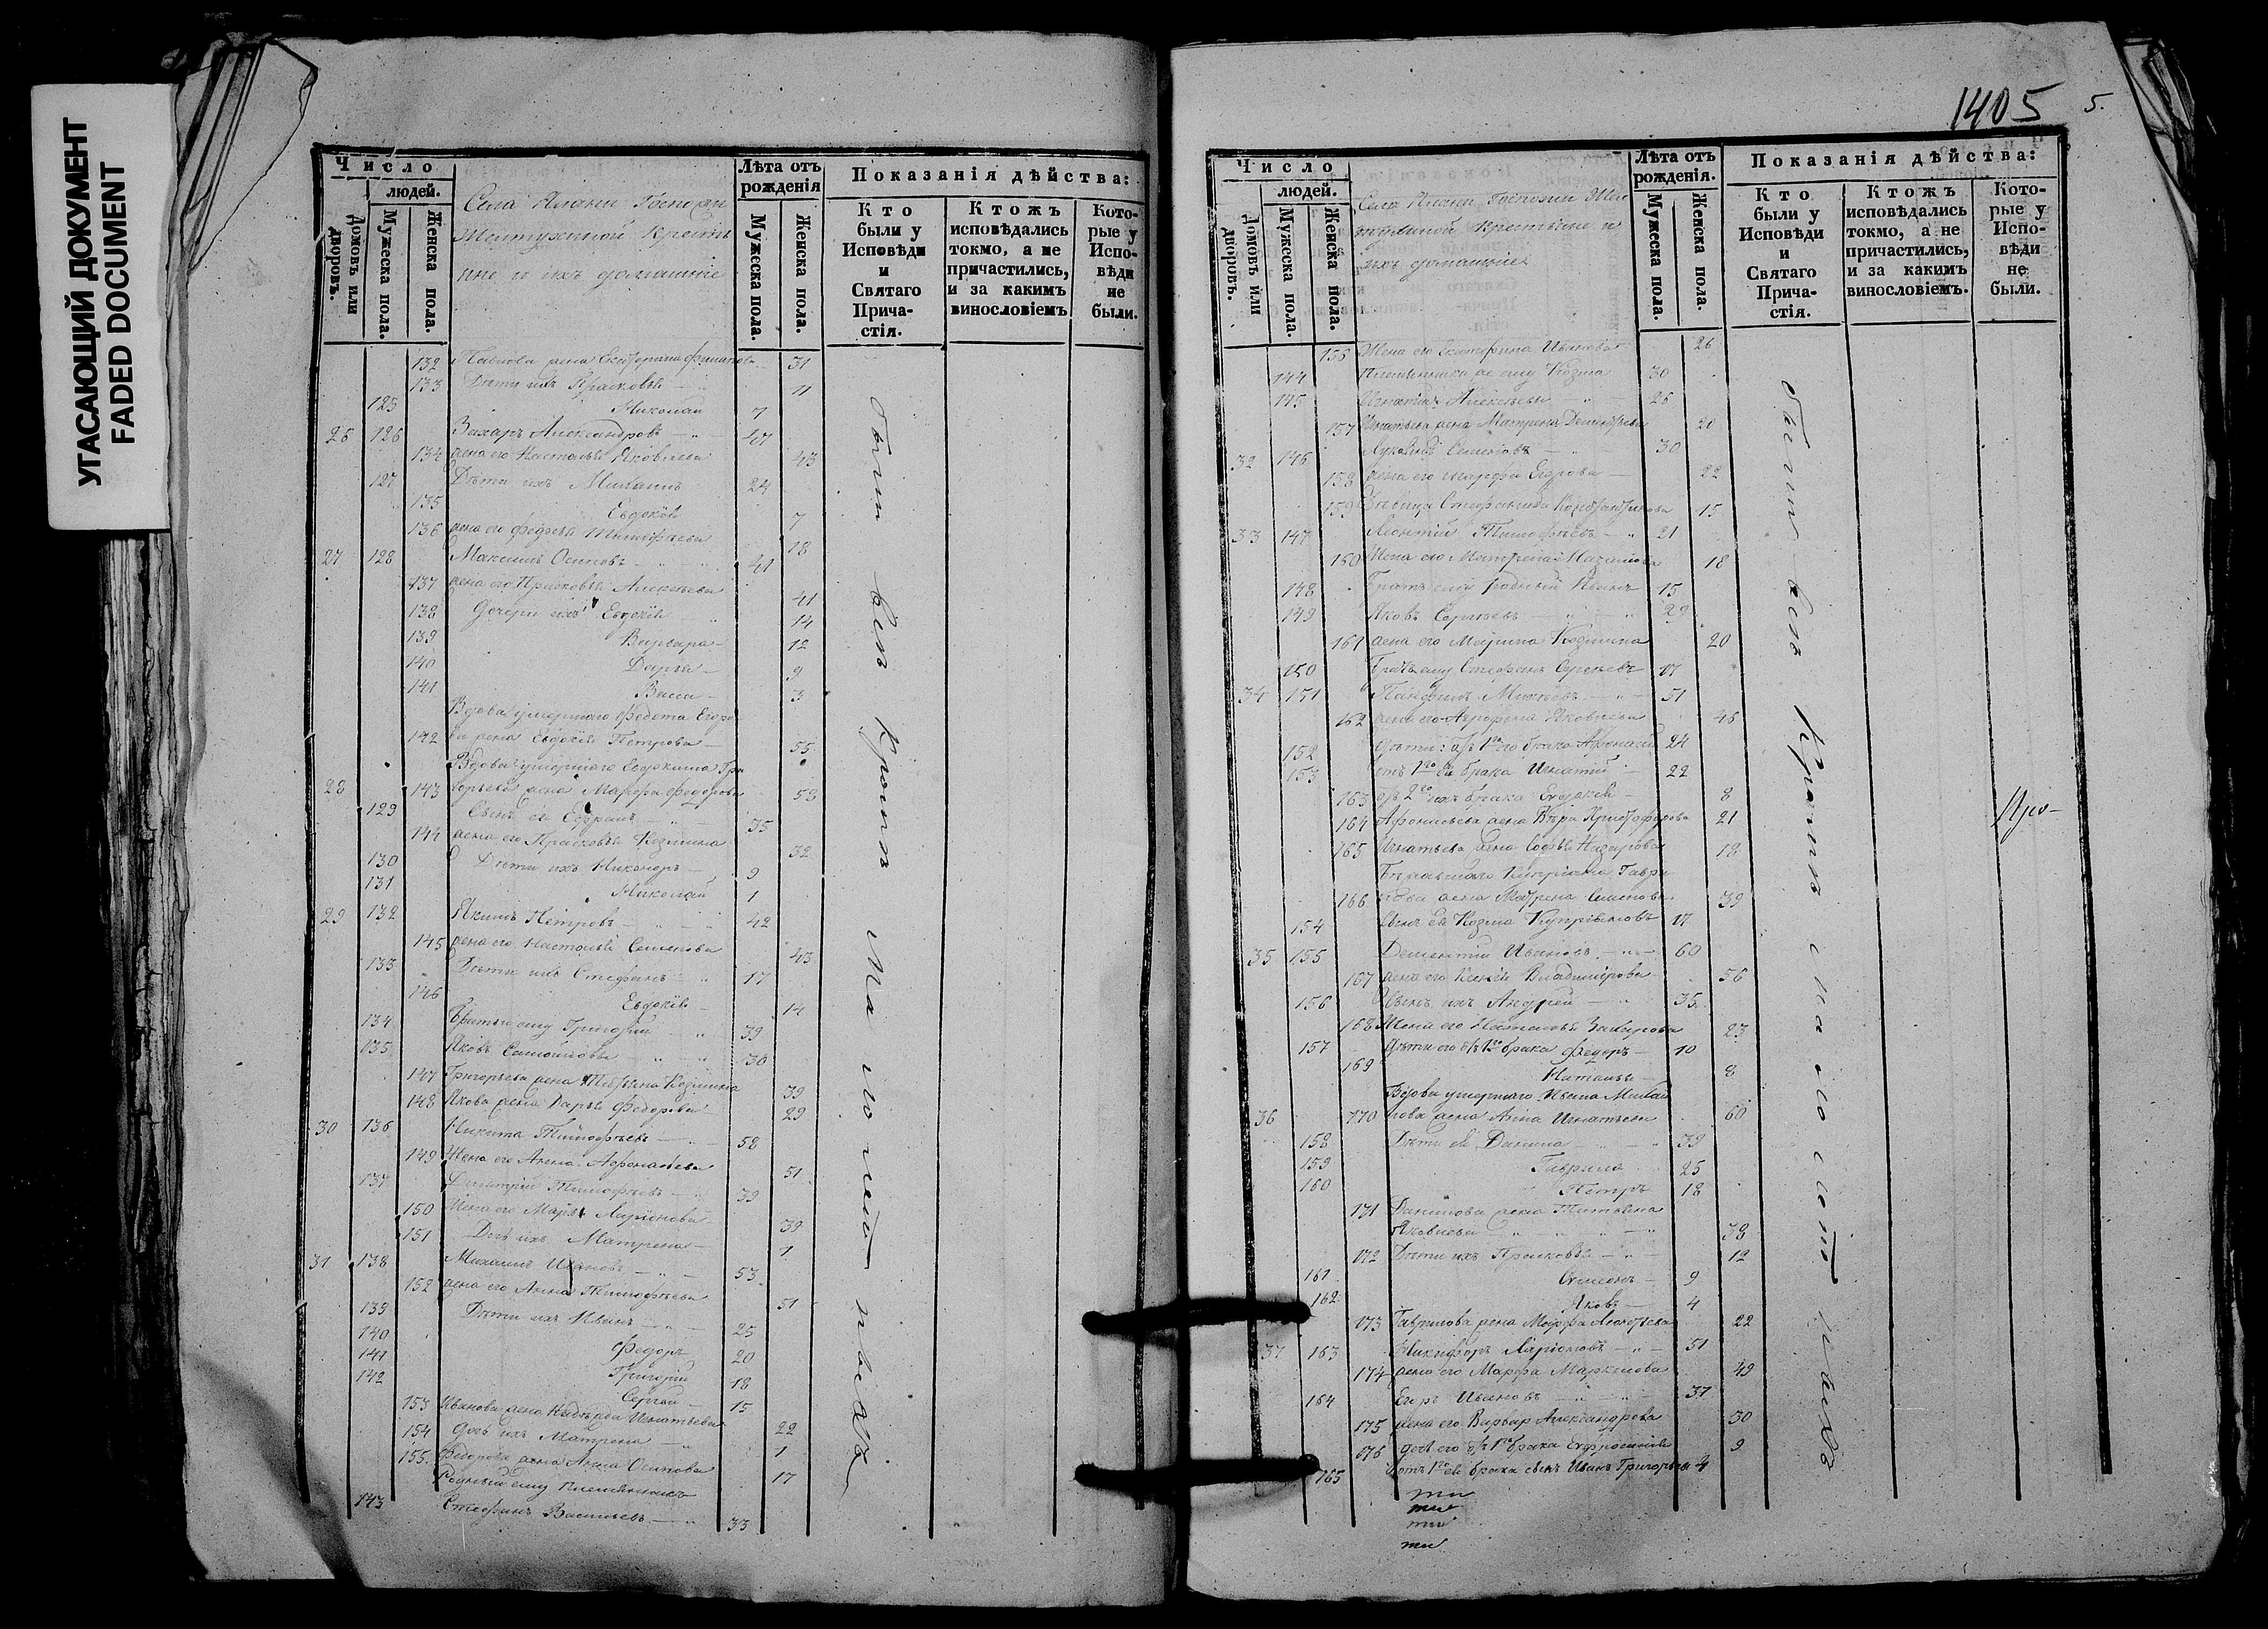 УГАСАЮЩИЙ ДОКУМЕНТ
FADED DOCUMENT
Число
людей.
Домовъ или дворовъ.
Мужеска пола.
Женска пола.
Села Господи
Крестья
не и ихъ домашніе
Лѣта отъ рожденія
Мужеска пола.
Женска пола.
Показанія дѣйства:
Кто были у Исповѣди и Святаго Прича-стія.
Ктожъ исповѣдались токмо, а не причастились, и за какимъ винословіемъ
Кото-рые у Испо-вѣди не были.
132 жена Екатерина 31
133 Дѣти ихъ Прасковья 11
125 Николай 7
26 126 Захаръ Александровъ 47
134 жена его Настасья Яковлева 43
127 Дѣти ихъ Михаилъ 24
135 Евдокія 7
136 жена его Тимофѣева 18
27 128 Максимъ Осиповъ 41
137 жена его Прасковья Алексѣева 41
138 Дочери ихъ Евдокія 14
139 Варвара 12
140 Дарья 9
141 Васса 3
Вдова умершаго Федота Егоро
142 ва жена Евдокія Петрова 55
Вдова умершаго Евдокима Гри
28 143 горьева жена Марфа Федорова 58
129 Сынъ ея 35
144 жена его Прасковья Козмина 32
130 Дѣти ихъ Никаноръ 9
131 Николай 1
29 132 Якимъ Петровъ 42
145 жена его Настасья Семенова 43
133 Дѣти ихъ Стефанъ 17
146 Евдокія 14
134 Братья ему Григорій 39
135 Яковъ 30
147 Григорьева жена Татьяна Козмина 39
148 Якова жена Дарья Федорова 29
30 136 Никита Тимофѣевъ 58
149 Жена его Анна Афонасьева 51
137 Дмитрій Тимофѣевъ 39
150 Жена его Марья Ларіонова 39
151 Дочь ихъ Матрена 1
31 138 Михаилъ Ивановъ 53
152 жена его Анна Тимофѣева 51
139 Дѣти ихъ Иванъ 25
140 Федоръ 20
141 Григорій 18
142 Сергей 15
153 Иванова жена Надежда Игнатьева 22
154 Дочь ихъ Матрена 1
155 Федорова жена Анна Осипова 17
Родный ему племянникъ
143 Стефанъ Васильевъ 33
были всѣ кромѣ малолетнихъ
1405
5.
Число
людей.
Домовъ или дворовъ.
Мужеска пола.
Женска пола.
Села Госпожи
Крестьяне и
ихъ домашніе
Лѣта отъ рожденія.
Мужеска пола.
Женска пола.
Показанія дѣйства:
Кто были у Исповѣди и Святаго Прича-стія.
Ктожъ исповѣдались токмо, а не причастились, и за какимъ винословіемъ.
Кото-рые у Испо-вѣди не были.
156 Жена его Екатерина Иванова 26
144 Племянники ему Козма 30
145 Игнатій Алексѣевы 26
157 Игнатьева жена Матрена Дементьева 20
32 146 Семеновъ 30
158 жена его Марфа Егорова 22
159 15
33 147 Леонтій Тимофѣевъ 21
160 Жена его Матрена 18
148 Братъ ему родный Иванъ 15
149 Яковъ Сергѣевъ 29
161 жена его Марина Козмина 20
150 Братъ ему Стефанъ Сергѣевъ 17
34 151 Панфилъ Михѣевъ 51
162 жена его Агрофена Яковлева 46
152 Дѣти: отъ 1го его брака Афонасій 24
153 отъ 1го ея брака Игнатій 22
163 отъ 2го ихъ брака Евдокія 8
164 Афонасьева жена Вѣра Христофорова 21
165 Игнатьева жена Софья Назарова 18
Бѣжавшаго Купріана Гаври
166 лова жена Матрена Семенова 39
154 Сынъ ея Козма Купріяновъ 17
35 155 Дементій Ивановъ 60
167 жена его Ксенія Владимірова 56
156 Сынъ ихъ Андрей 35
168 Жена его Наталья Захарова 23
157 Дѣти его отъ 1го брака Федоръ 10
169 Наталья 8
Вдова умершаго Ивана Михай
36 170 лова жена Анна Игнатьева 60
158 Дѣти ея Данила 39
159 Гаврила 25
160 Петръ 18
171 Данилова жена Татьяна
Яковлева 38
172 Дѣти ихъ Прасковья 12
161 Симеонъ 9
162 Яковъ 4
173 Гаврилова жена Марфа Леонтьева 22
37 163 Никифоръ Ларіоновъ 51
174 жена его Марфа Маркелова 49
164 Егоръ Ивановъ 37
175 жена его Варвар Александрова 30
176 дочь его отъ 1го брака Евфросинія 9
165 отъ 1го ея брака сынъ Иванъ Григорьевъ 4
были всѣ кромѣ малолетнихъ
Про-